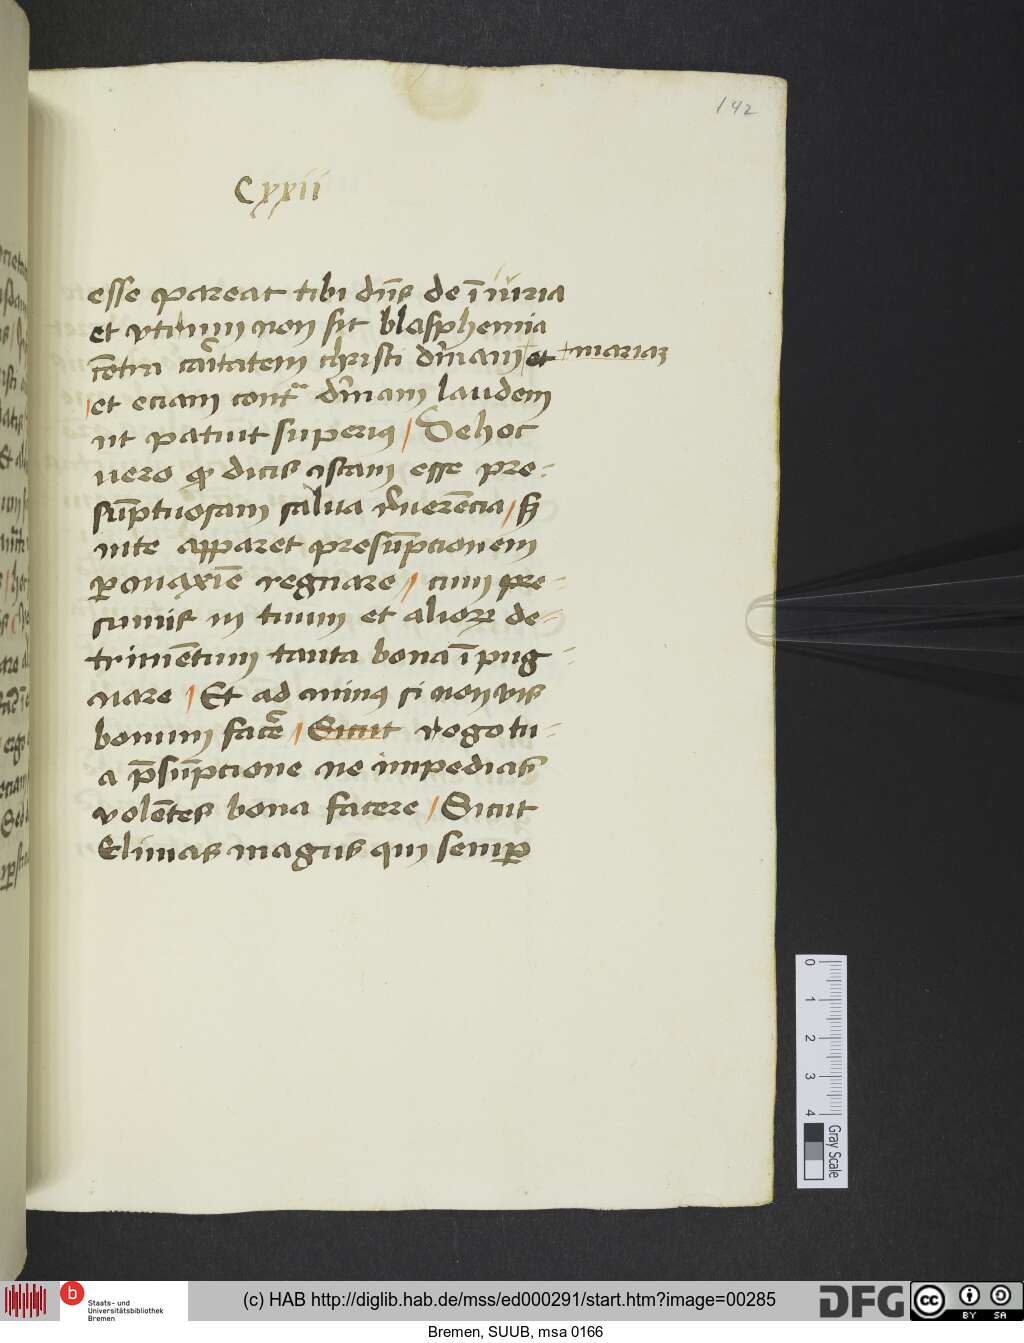 142
Cxxii
esse pareat tibi dn̄s de īiuria
et vtinum non sit blasphemia
cōtra caritatem christi diuinam et +mariaꝫ
et eciam contᵃ diuinam laudem
ut patuit superius / De hoc
uero ꝙ dicis istam esse pre-
sūptuosam salua reuerēcia /
in te apparet presūpcionem
ꝑ maxīe regnare / cum pre-
sumis in tuum et alioꝝ de-
trimētum tanta bona īpug
nare / Et ad minus si non vis
bonum facere / Sicut rogo tu-
a p̄sūpcione ne impedias
volētes bona facere / Sicut
Elimas magus qui semꝑ
0 1 2 3 4
Gray Scale
b
Staats- und
Universitätsbibliothek
Bremen
(c) HAB http://diglib.hab.de/mss/ed000291/start.htm?image=00285
DFG
cc
BY SA
Bremen, SUUB, msa 0166